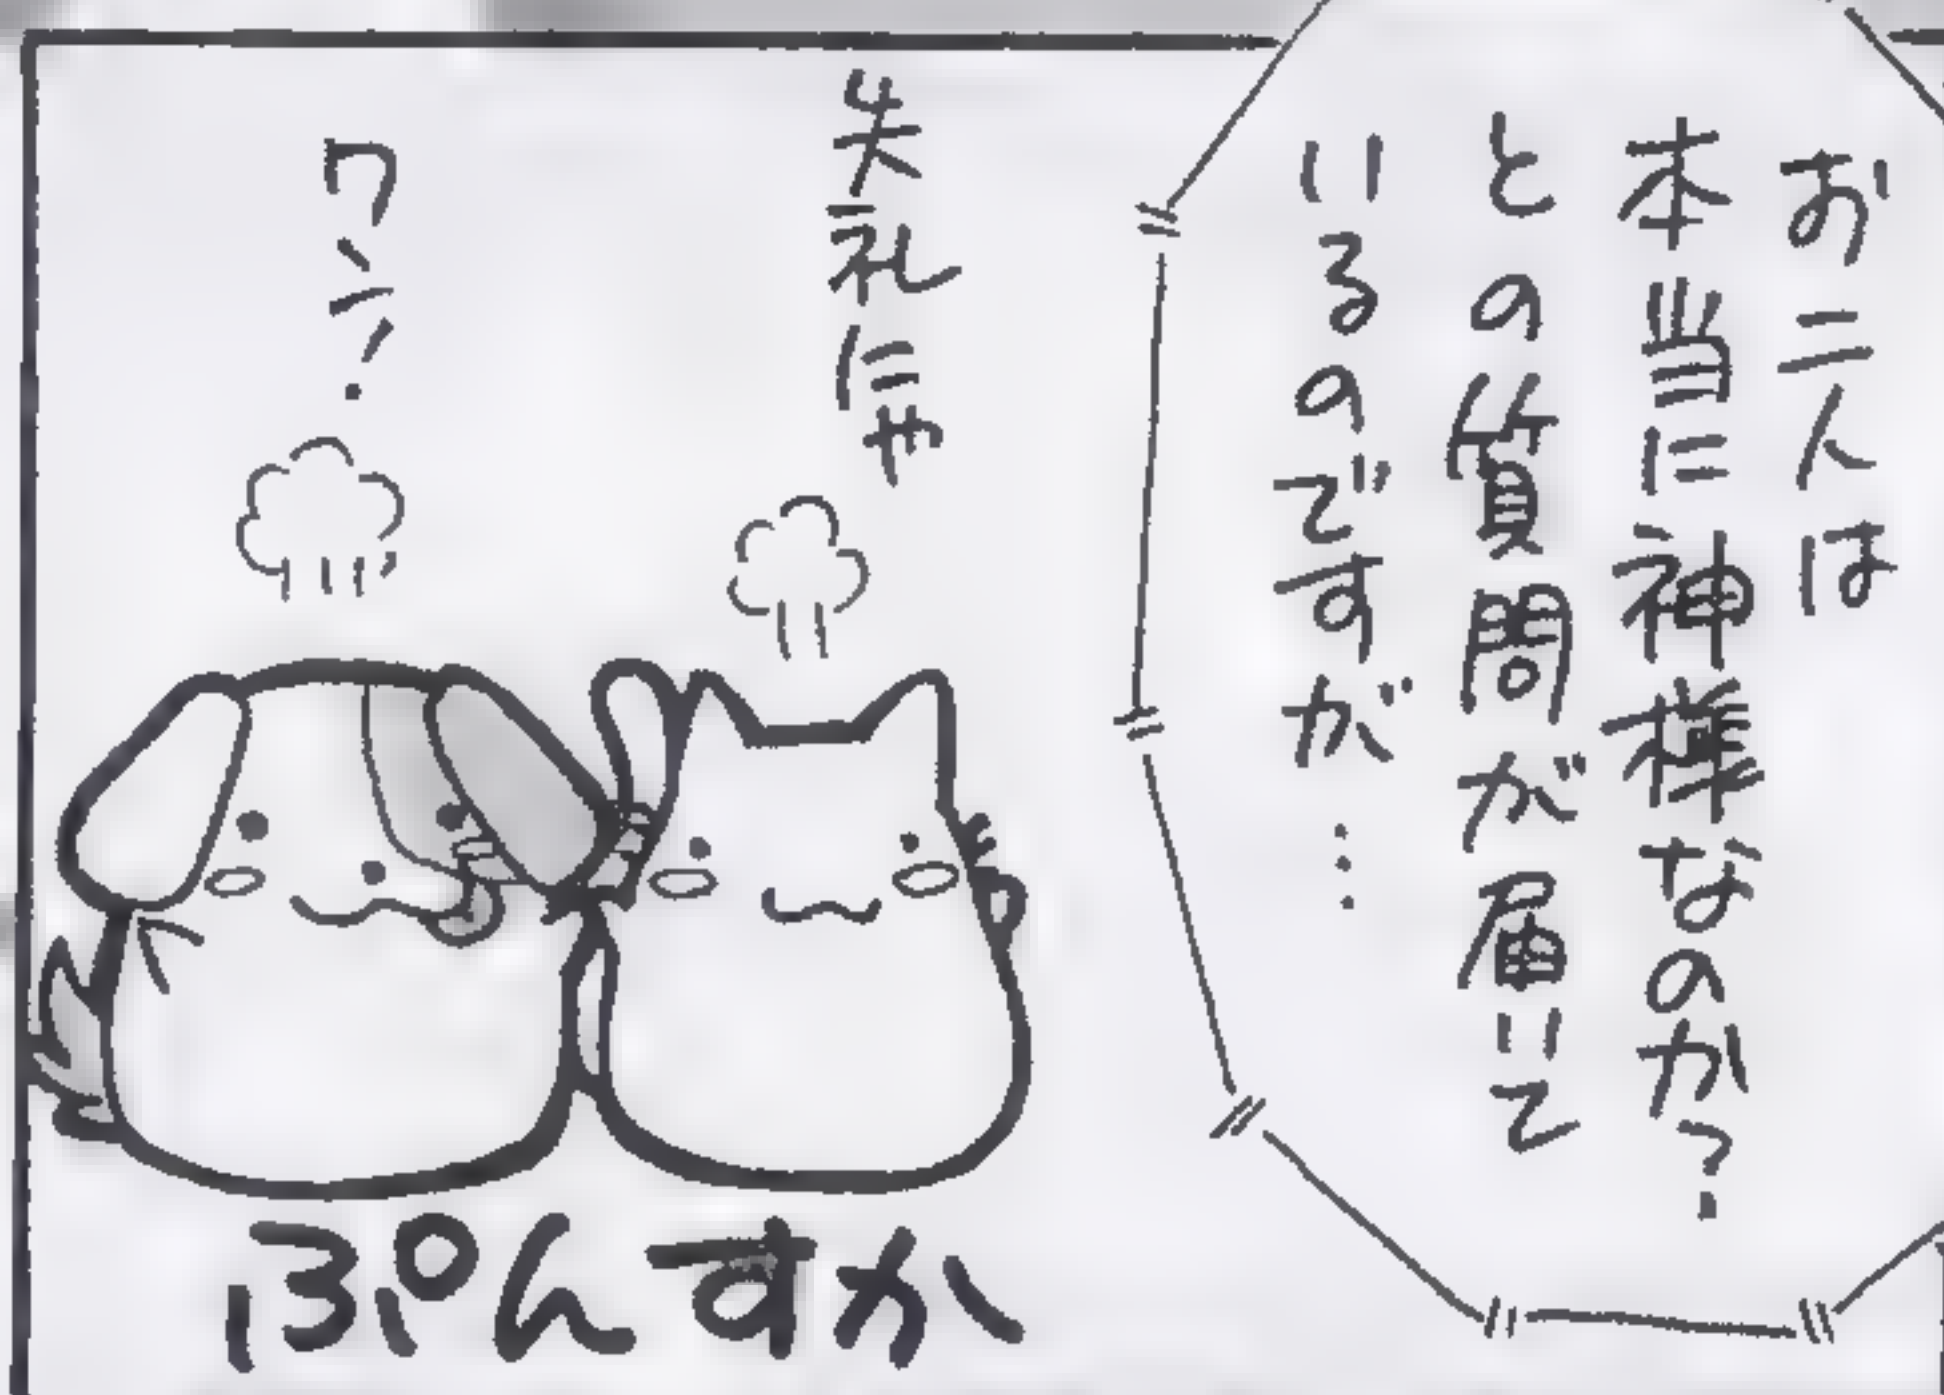 お二人は
本当に神様なのか？
との質問が届いて
いるのですが…
失礼にゃ
ワン！
ぷんすか